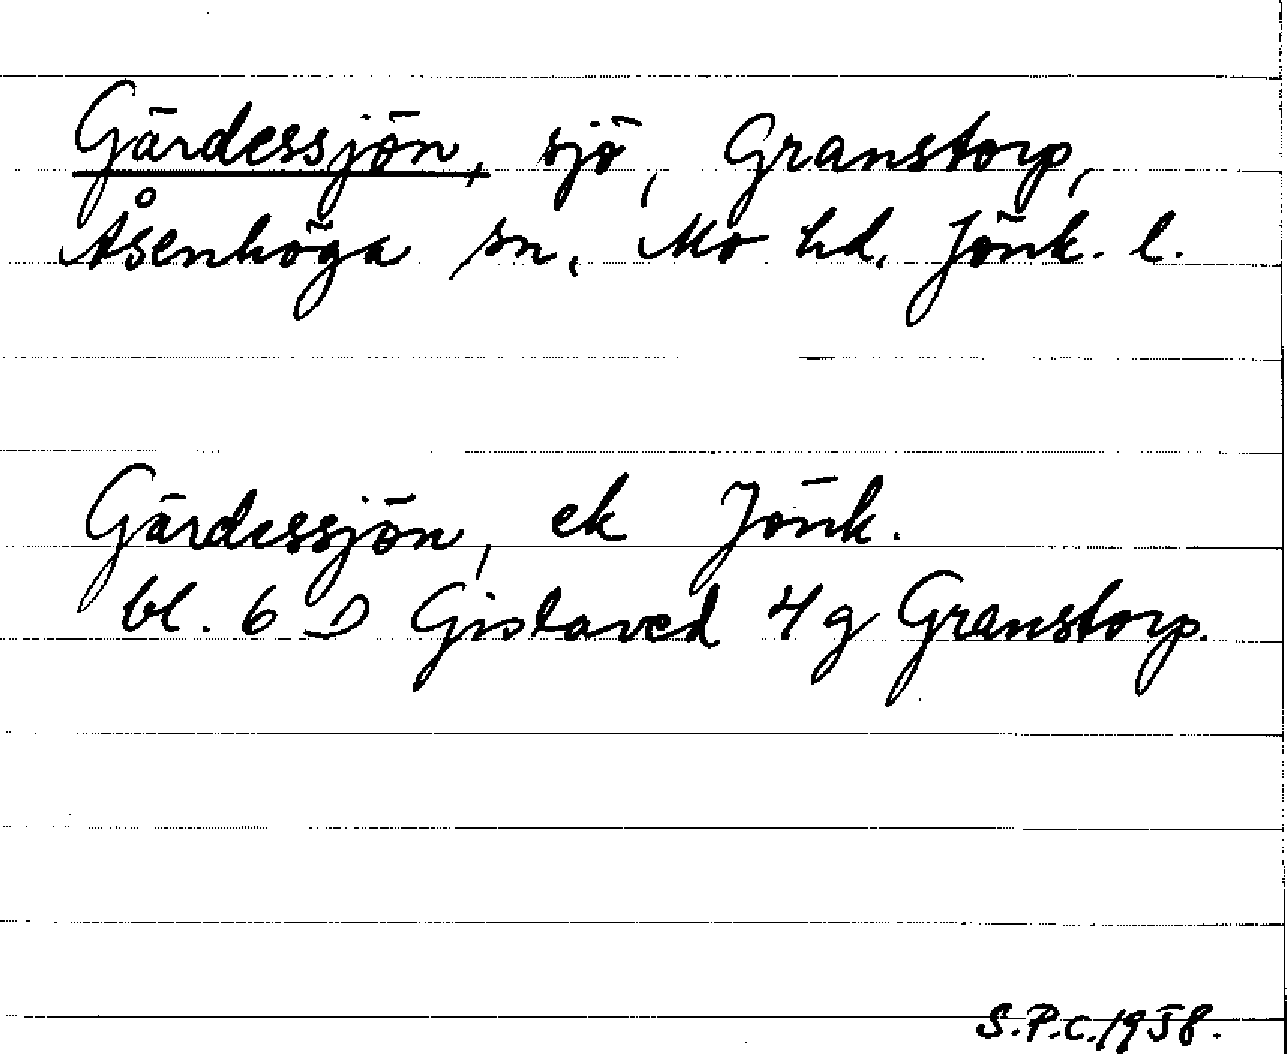 Gärdessjön, sjö, Granstorp,
Åsenhöga sn, Mo hd, Jönk. l.
Gärdessjön, ek Jönk.
bl. 6 D Gislaved 4 g Granstorp.
S.P.C. 1958.